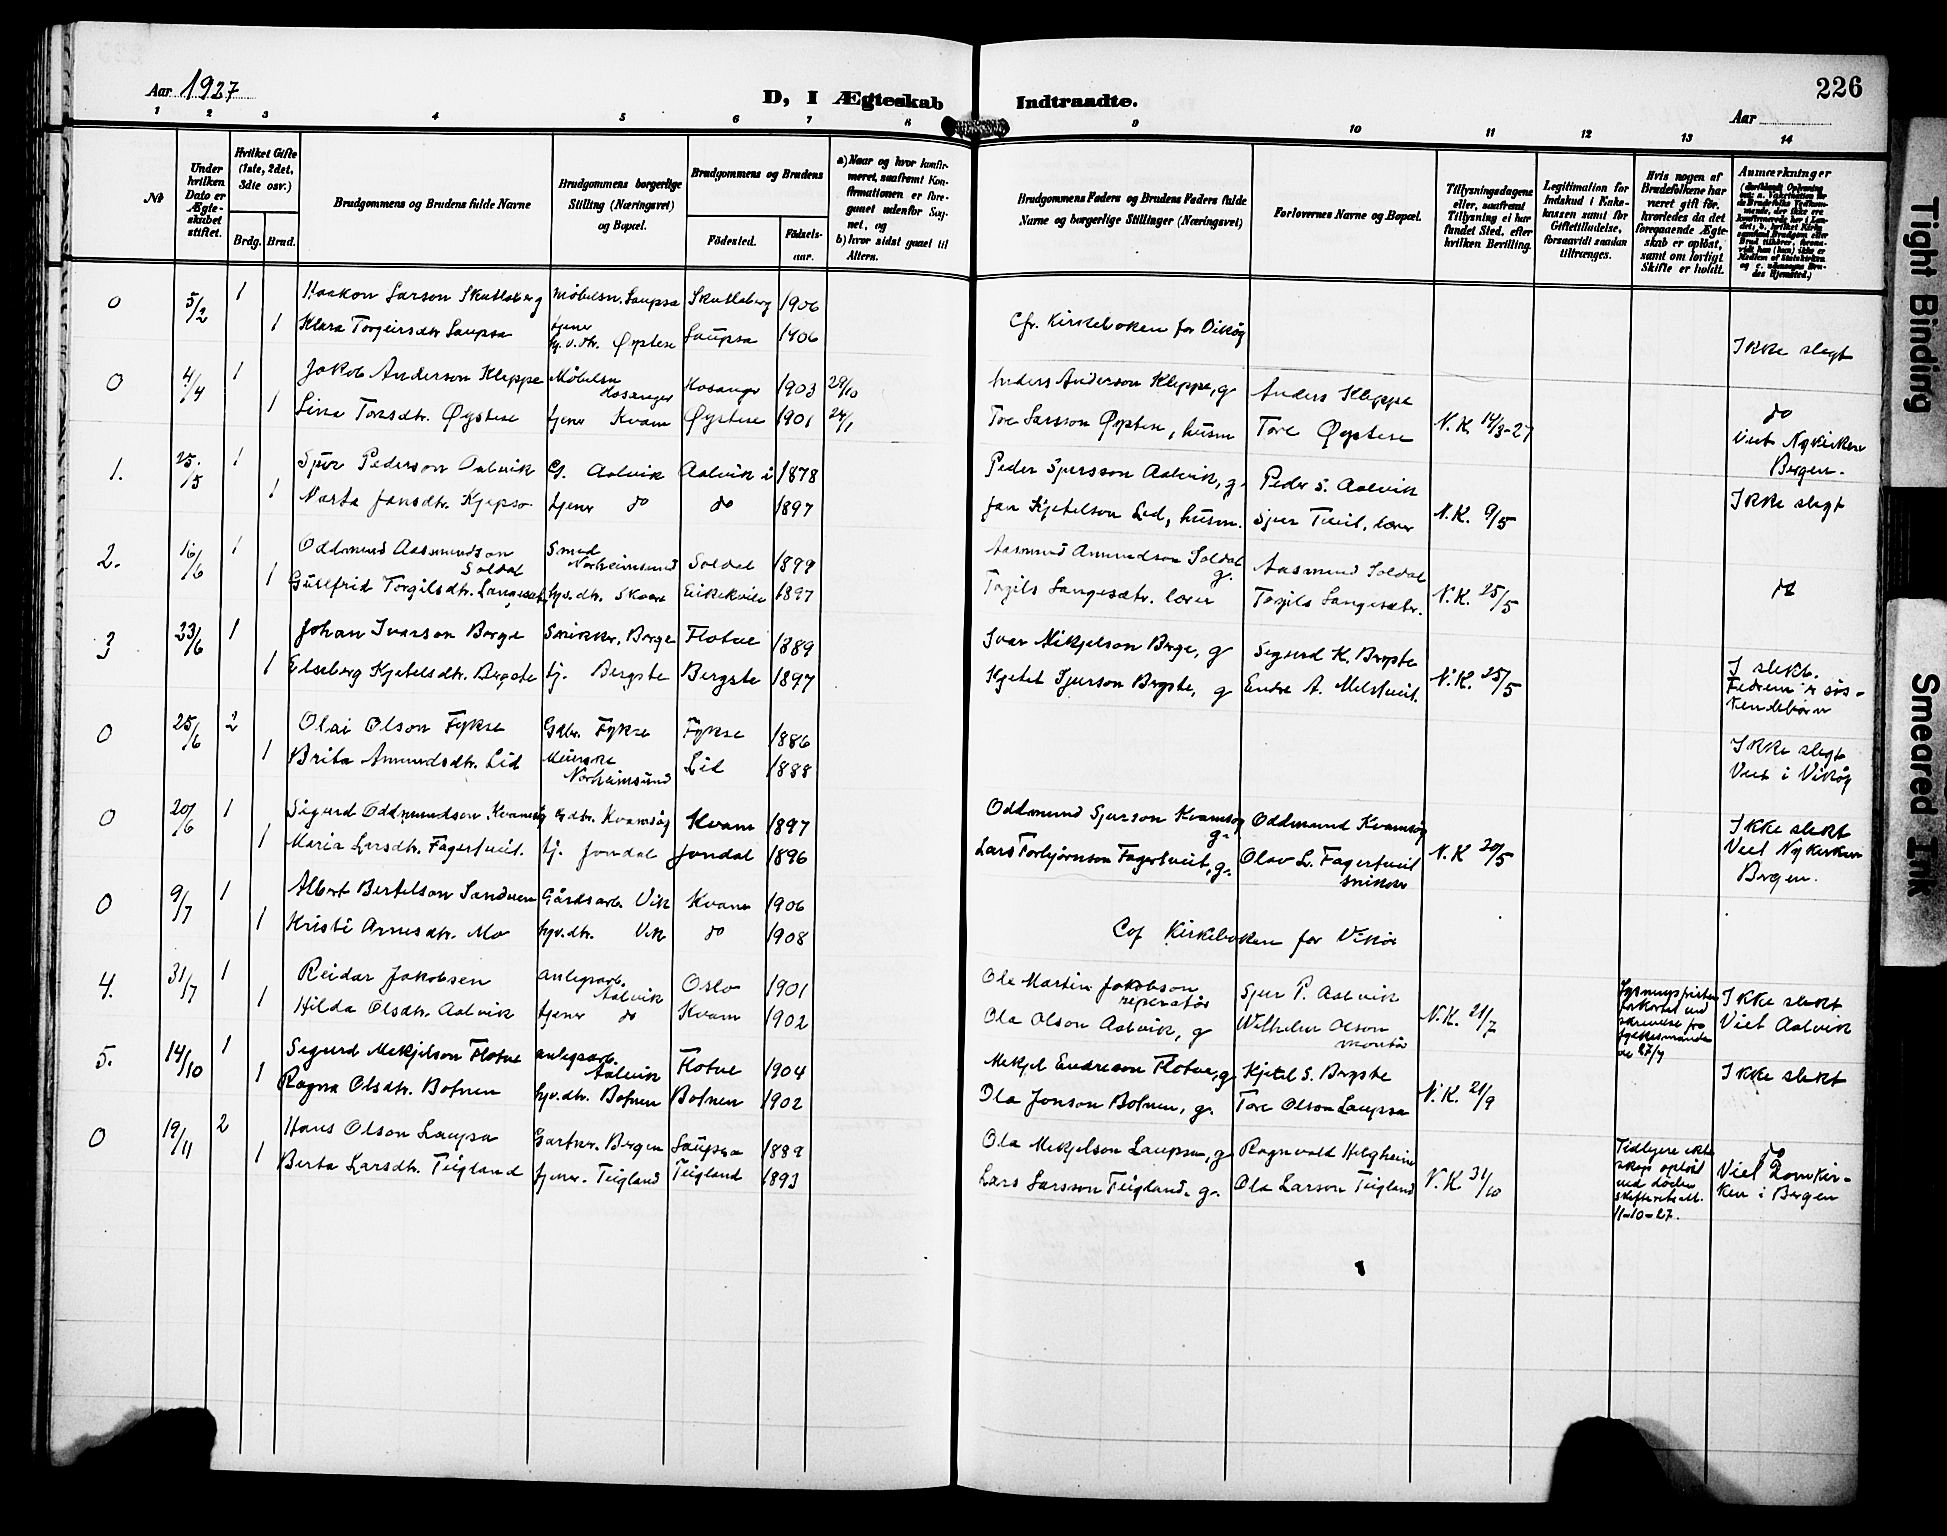 Aar 1927
D, I Ægteskab Indtraadte.
226
Aar
1 2 3 4 5 6 7 8 9 10 11 12 13 14
№
Under hvilken Dato er Ægteskabet stiftet.
Hvilket Gifte (1ste, 2det, 3die osv.)
Brdg. Brud.
Brudgommens og Brudens fulde Navne
Brudgommens borgerlige Stilling (Næringsvei) og Bopæl.
Brudgommens og Brudens
Födested. Födselsaar.
a) Naar og hvor konfirmeret, saafremt Konfirmationen er foregaaet udenfor Sognet, og
b) hvor sidst gaaet til Altern.
Brudgommens Faders og Brudens Faders fulde Navne og borgerlige Stillinger (Næringsvei)
Forlovernes Navne og Bopæl.
Tillysningsdagene eller, saafremt Tillysning ei har fundet Sted, efter hvilken Bevilling.
Legitimation for Indskud i Enkekassen samt for Giftetilladelse, forsaavidt saadan tiltrænges.
Hvis nogen af Brudefolkene har været gift för, hvorledes da det foregaaende Ægteskab er oplöst, samt om lovligt Skifte er holdt.
Anmærkninger
0 5/2 1 Haakon Larson Skutlaberg Møbelsn. Laupsa Skutlaberg 1906
1 Klara Torgeirsdtr. Laupsa tjener Øystese Laupsa 1906 Cfr. Kirkeboken for Vikøy
Ikke slegt
0 4/4 1 Jakob Anderson Kleppe Møbelsn Hosanger Hosanger 1903 29/10 Anders Anderson Kleppe, g Anders Kleppe
1 Lina Toresdtr. Øystese tjener Kvam Øystese 1901 24/1 Tore Larsson Øystese, husm Tore Øystese N.K. 14/3-27 do
viet Nykirken Bergen.
1. 25./5 1 Sjur Pederson Aalvik G. Aalvik Aalvik i 1878 Peder Sjursson Aalvik, g. Peder S. Aalvik
1 Marta Jonsdtr. Kjepso tjener do do 1897 Jon Kjetelson Lid, husm. Sjur Tveit, lærer N.K. 9/5 Ikke slegt
2. 16/6 1 Oddmund Aasmundson Soldal Smed Norheimsund Soldal 1899 Aasmund Amundson Soldal g. Aasmund Soldal
1 Gullfrid Torgilsdtr. Langesæter hjv. dtr. Skaare Eikekvile 1897 Torgils Langesætr. lærer Torgils Langesætr. N.K. 25/5 do
3 23/6 1 Johan Ivarson Berge Snikkr. Berge Flotve 1889 Ivar Mikjelson Berge, g Sigurd K. Byrste
1 Elseberg Kjetelsdtr. Bergste tj. Bergste Bergste 1897 Kjetel Sjurson Bergste, g Endre A. Melstveit. N.K. 25/5 I slekt. Fedrene er søskendebørn
0 25/6 2 Olai Olson Fykse Gdbr. Fykse Fykse 1886
1 Brita Amundsdtr. Lid Norheimsund Lid 1888 Ikke slegt
Viet i Vikøy
0 20/6 1 Sigurd Oddmundson Kvamsøy Gdbr. Kvamsøy Kvam 1897 Oddmund Sjurson Kvamsøy g. Oddmund Kvamsøy
1 Maria Larsdtr. Fagertveit. tj. Jondal Jondal 1896 Lars Torbjørnson Fagertveit, g. Olav L. Fagertveit snikker N.K 20/5 Ikke slekt
Viet Nykirken Bergen.
0 9/7 1 Albert Bertelson Sandven Gårdsarb. Vik Kvam 1906
1 Kristi Arnesdtr. Mo hjv. dtr. Vik do 1908 Cof Kirkeboken for Vikør
4. 31/7 1 Reidar Jakobsen anlegsarb. Aalvik Oslo 1901 Ole Martin Jakobson reperatør Sjur P. Aalvik
1 Hilda Olsdtr. Aalvik tjener do Kvam 1902 Ola Olson Aalvik, g Wilhelm Olson montør N.K. 21/7 Lysningsfristen forkortet ved skrivelse fra fylkesmanden de 27/7 Ikke slekt
Viet Aalvik
5. 14/10 1 Sigurd Mikjelson Flotve anlegsarb. Aalvik Flotve 1904 Mikjel Endreson Flotve, g Kjetel S. Byrste
1 Ragna Olsdtr. Botnen hjv. dtr. Botnen Botnen 1902 Ola Jonson Botnen, g. Tore Olson Laupsa N.K. 21/9 Ikke slekt
0 19/11 2 Hans Olson Laupsa Gartner. Bergen Laupsa 1889 Ola Mikjelson Laupsa, g Ragnvald Helgheim
1 Berta Larsdtr. Teigland tjener. Teigland Teigland 1893 Lars Larsson Teigland. g. Ola Larson Teigland N.K. 31/10 Tidligere ekteskap opløst ved døden skifteretsatt. 11-10-27. do
Viet Domkirken i Bergen
Tight Binding
Smeared Ink